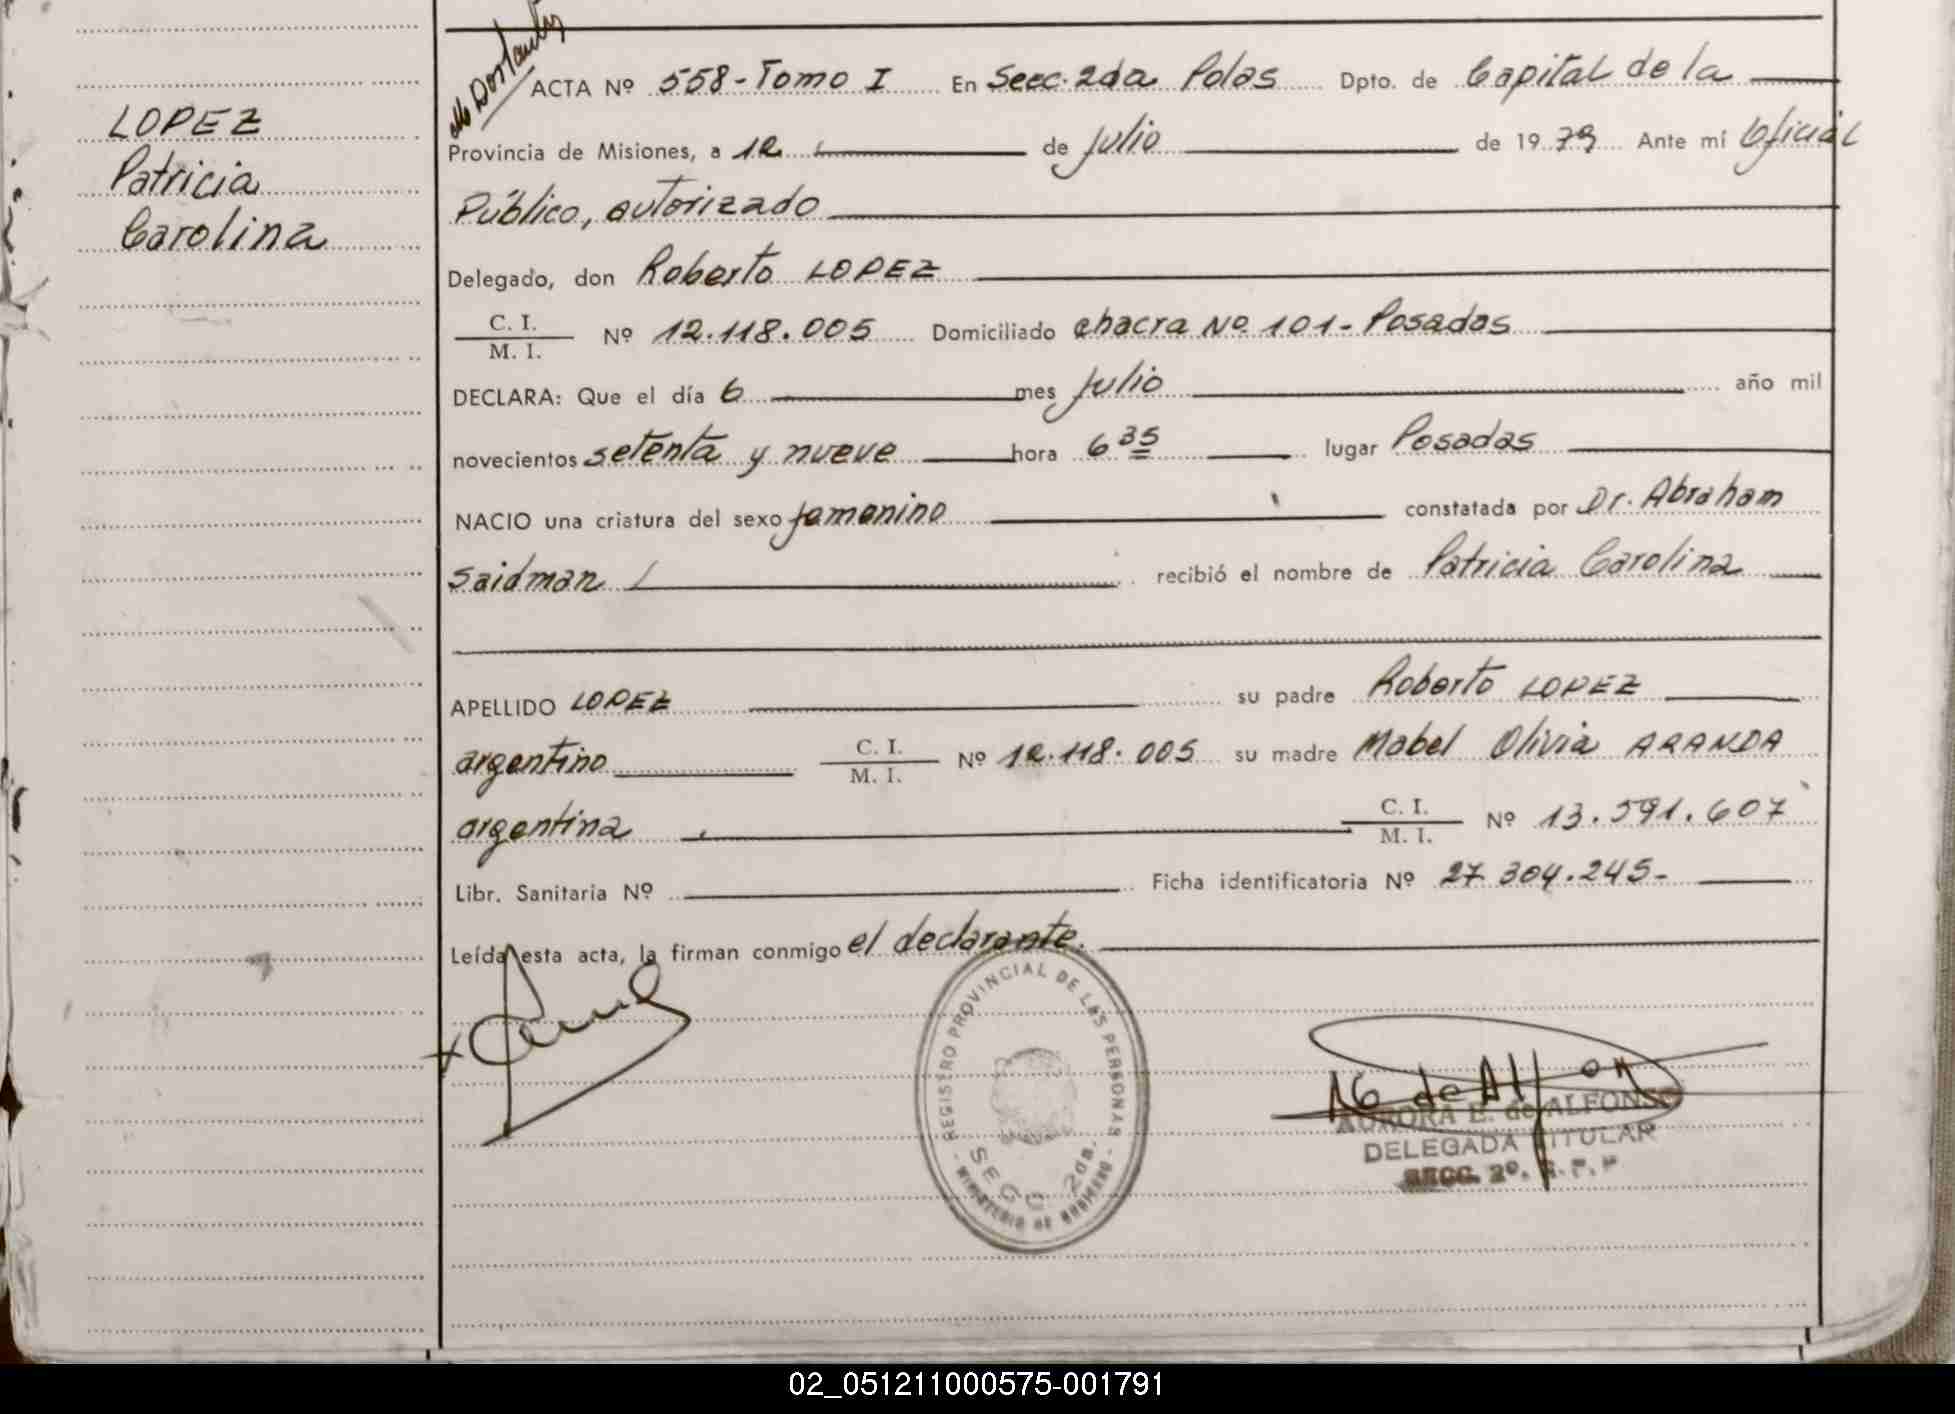 LOPEZ
Patricia
Carolina
ACTA Nº 558-Tomo I En Secc. 2da Pdas Dpto. de Capital de la
Provincia de Misiones, a 12 de Julio de 1979 Ante mí Oficial
Público, autorizado
Delegado, don Roberto LOPEZ
C. I.
M. I.
Nº 12.118.005 Domiciliado chacra Nº 101- Posadas
DECLARA: Que el día 6 mes Julio año mil
novecientos setenta y nueve hora 6 35 lugar Posadas
NACIO una criatura del sexo femenino constatada por Dr. Abraham
Saidman recibió el nombre de Patricia Carolina
APELLIDO LOPEZ su padre Roberto LOPEZ
argentino C. I.
M. I. Nº 12.118.005 su madre Mabel Olivia ARANDA
argentina C. I.
M. I. Nº 13.591.607
Libr. Sanitaria Nº Ficha identificatoria Nº 27 304.245-
Leída esta acta, la firman conmigo el declarante.
REGISTRO PROVINCIAL DE LAS PERSONAS
SECC. 2da.
- MINISTERIO DE GOBIERNO -
AURORA E. de ALFONSO
DELEGADA TITULAR
SECC. 2º. R. P. P.
02_051211000575-001791